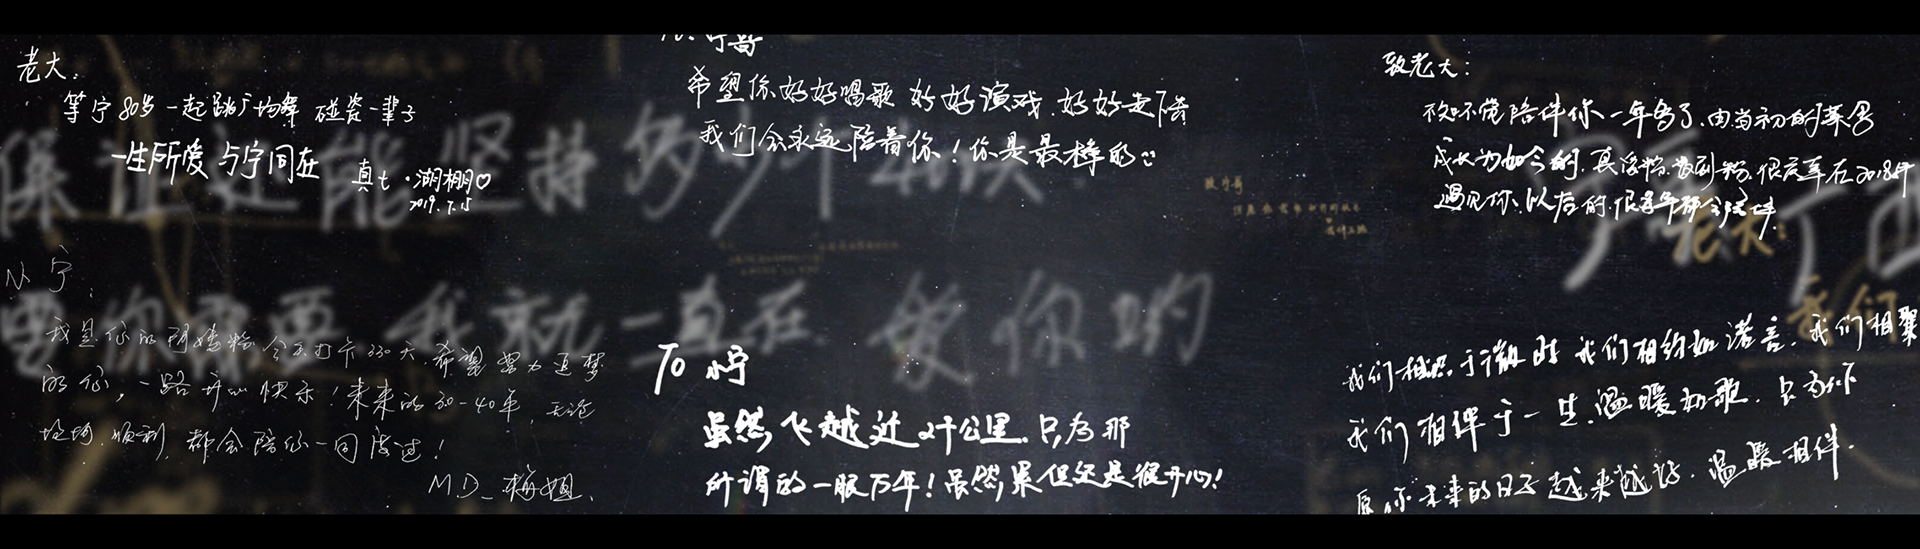 老大：
等宁80岁一起跳广场舞 碰瓷一辈子
一生所爱 与宁同在
真七·湖棚♡
2019.7.15
To 宁：
我是你的阿姨粉,今天打卡330天,希望努力追梦
的你，一路开心快乐！未来的30-40年,无论
坎坷、顺利,都会陪你一同度过！
M.D_梅姐.
To:宁哥
希望你好好唱歌 好好演戏.好好走下去
我们会永远陪着你！你是最棒的
To 小宁
虽然飞越近2千公里.只为那
所谓的一眼万年！虽然累但还是很开心！
致老大：
不知不觉陪伴你一年多了.由当初的
成长为如今的.真 很庆幸在2018年
遇见你.以后的很多年都会
我们相识于微时 我们相约如诺言.我们相聚
我们相伴于一生.温暖如歌.只为
愿你未来的日子越来越好.温暖相伴.
保证还能坚持多少个
要你需要 我就一直在 爱你哟
致宁哥
老大：
我们